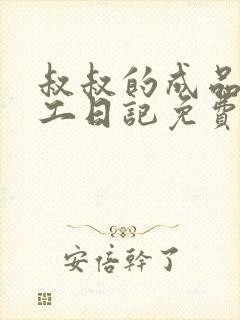 叔叔的成品
工日記免費
安倍幹了